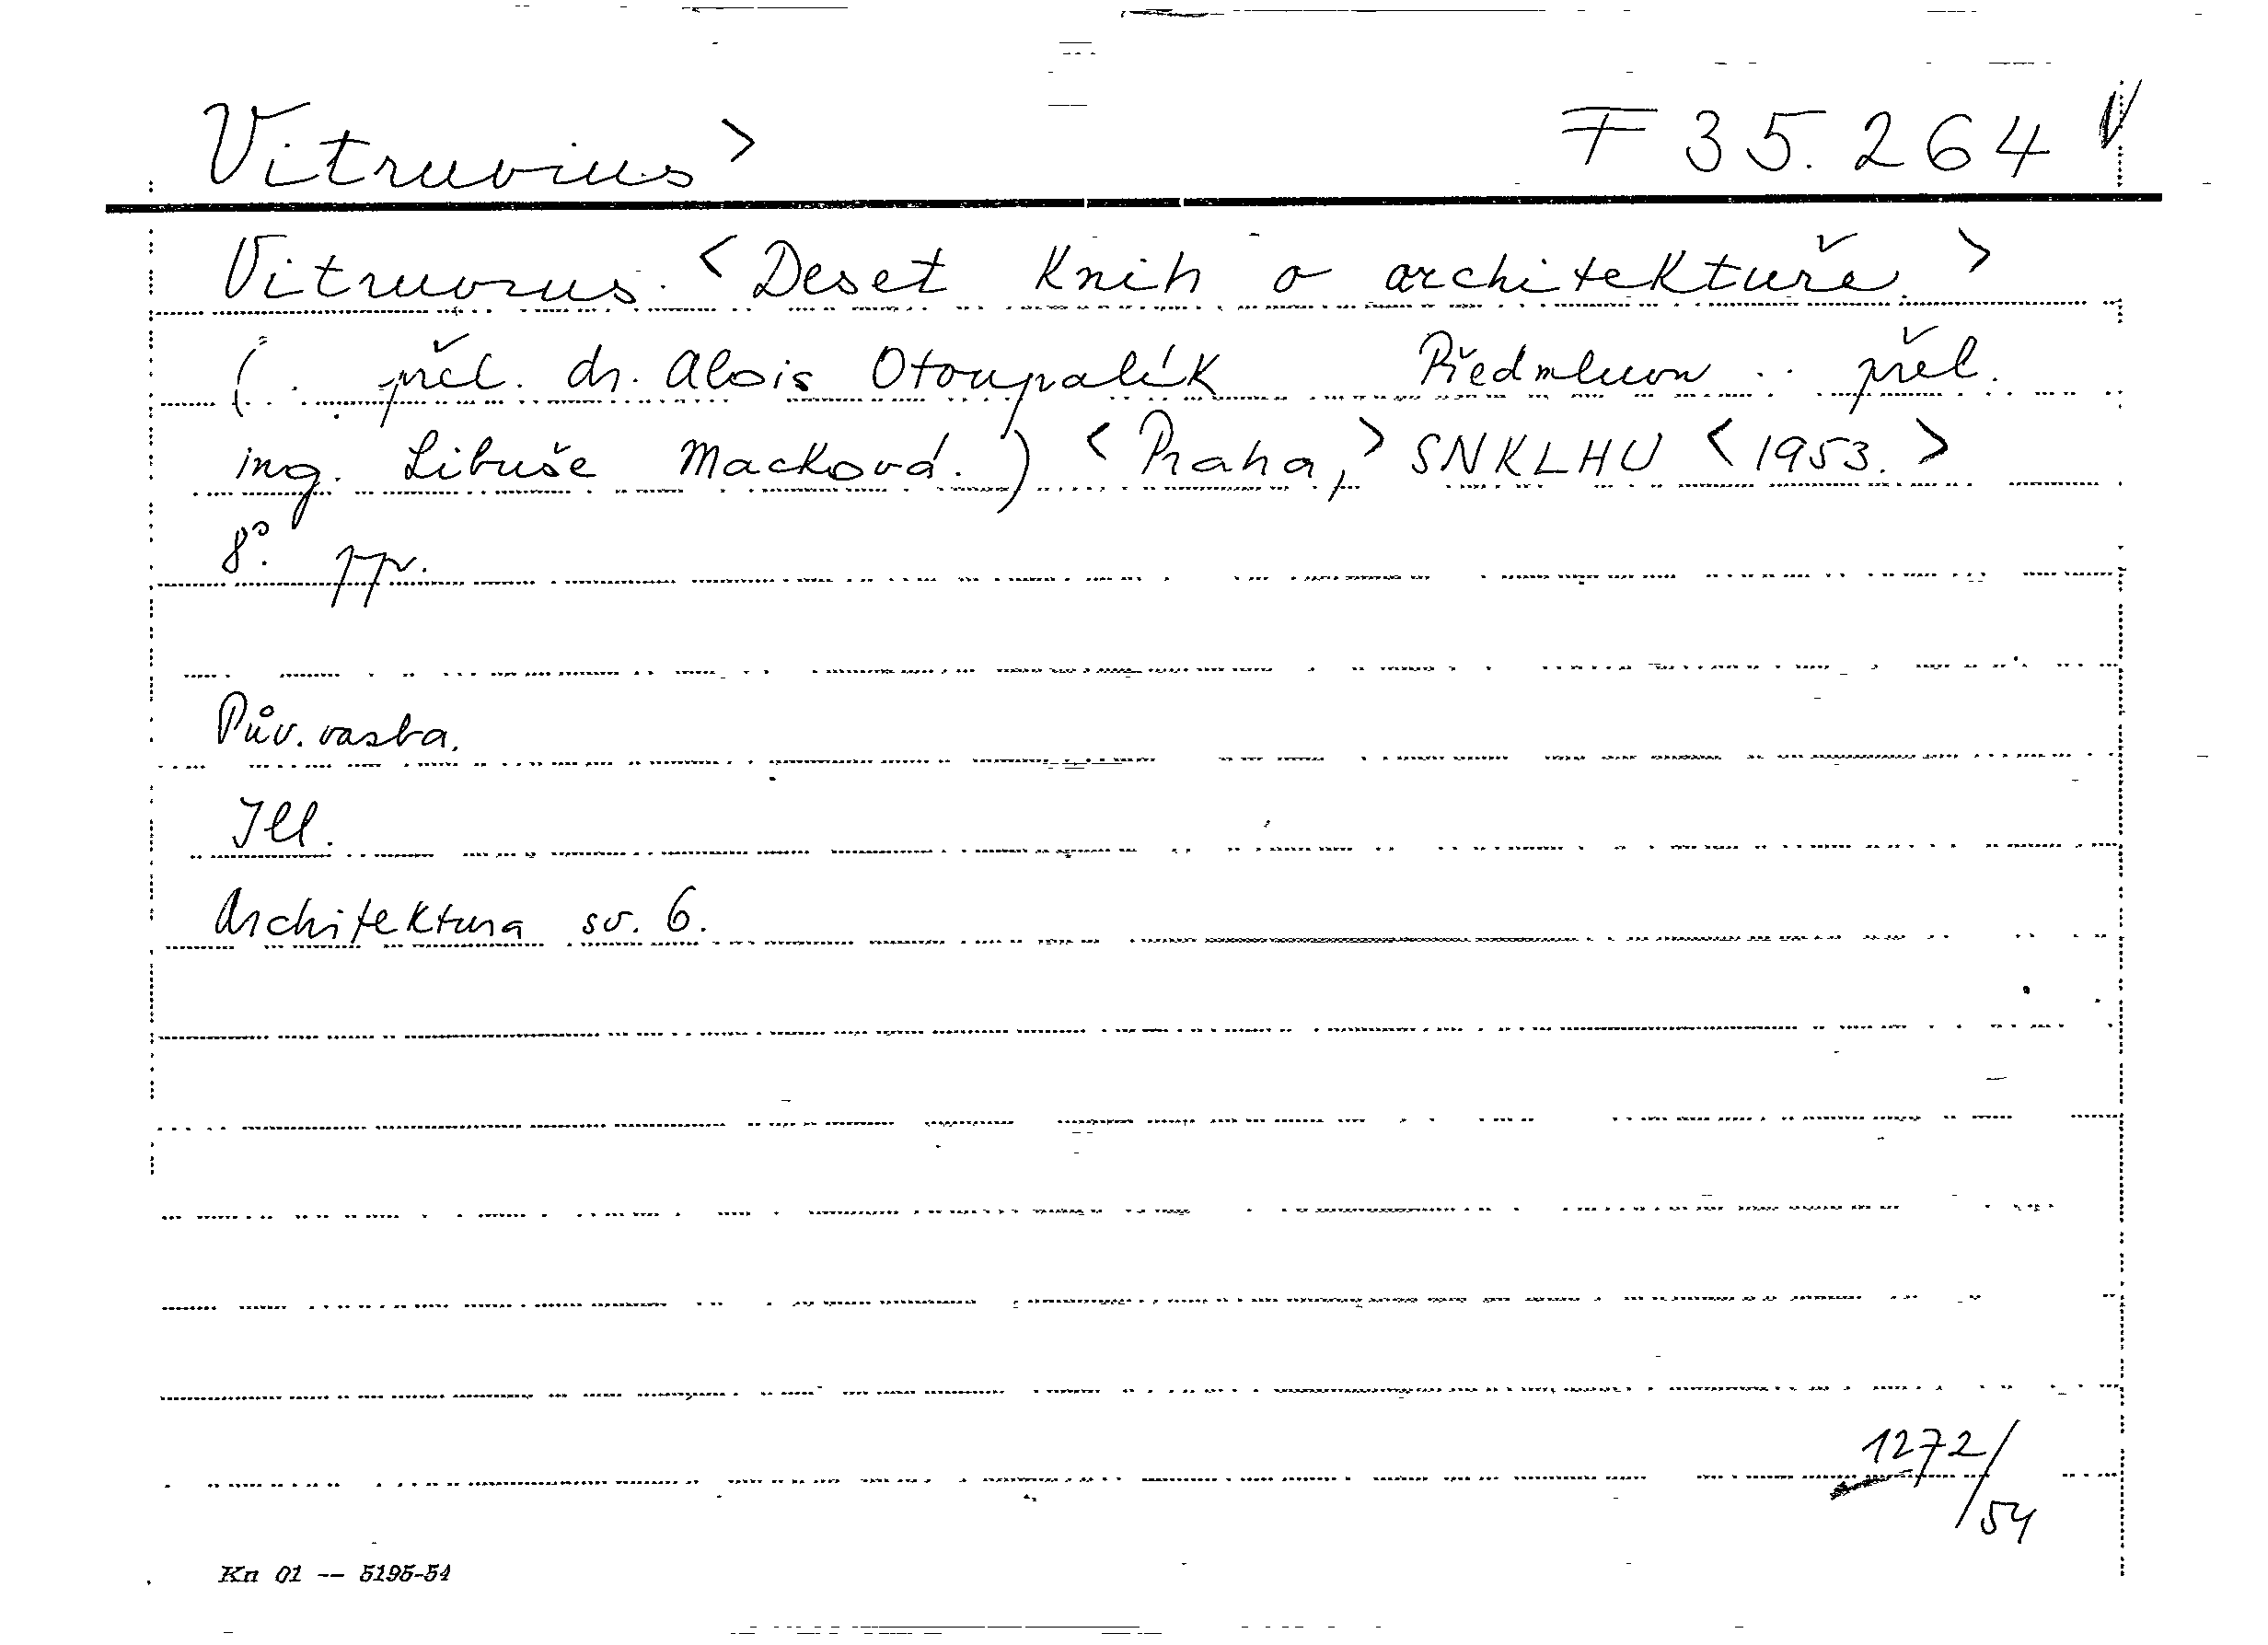 Vitruvius > F 35.264 V
Vitruvius. < Deset knih o architektuře. >
(.. přel. dr. Alois Otoupalík Předmluvou .. přel.
ing. Libuše Macková.) < Praha, > SNKLHU < 1953. >
8°. pp.
Pův. vazba.
Ill.
Architektura sv. 6.
1272/
54
Kn 01 -- 5195-54